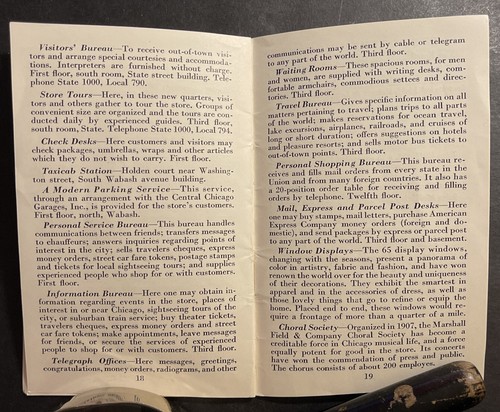 Visitors' Bureau—To receive out-of-town visi-
tors and arrange special courtesies and accommoda-
tions. Interpreters are furnished without charge.
First floor, south room, State street building. Tele-
phone State 1000, Local 790.
Store Tours—Here, in these new quarters, visi-
tors and others gather to tour the store. Groups of
convenient size are organized and the tours are con-
ducted daily by experienced guides. Third floor,
south room, State. Telephone State 1000, Local 794.
Check Desks—Here customers and visitors may
check packages, umbrellas, wraps and other articles
which they do not wish to carry. First floor.
Taxicab Station—Holden court near Washing-
ton street, South Wabash avenue building.
A Modern Parking Service—This service,
through an arrangement with the Central Chicago
Garages, Inc., is provided for the store's customers.
First floor, north, Wabash.
Personal Service Bureau—This bureau handles
communications between friends; transfers messages
to chauffeurs; answers inquiries regarding points of
interest in the city; sells travelers cheques, express
money orders, street car fare tokens, postage stamps
and tickets for local sightseeing tours; and supplies
experienced people who shop for or with customers.
First floor.
Information Bureau—Here one may obtain in-
formation regarding events in the store, places of
interest in or near Chicago, sightseeing tours of the
city, or suburban train service; buy theater tickets,
travelers cheques, express money orders and street
car fare tokens; make appointments, leave messages
for friends, or secure the services of experienced
people to shop for or with customers. Third floor.
Telegraph Offices—Here messages, greetings,
congratulations, money orders, radiograms, and other
18
communications may be sent by cable or telegram
to any part of the world. Third floor.
Waiting Rooms—These spacious rooms, for men
and women, are supplied with writing desks, com-
fortable armchairs, commodious settees and direc-
tories. Third floor.
Travel Bureau—Gives specific information on all
matters pertaining to travel; plans trips to all parts
of the world; makes reservations for ocean travel,
lake excursions, airplanes, railroads, and cruises of
long or short duration; offers suggestions on hotels
and pleasure resorts; and sells motor bus tickets to
out-of-town points. Third floor.
Personal Shopping Bureau—This bureau re-
ceives and fills mail orders from every state in the
Union and from many foreign countries. It also has
a 20-position order table for receiving and filling
orders by telephone. Twelfth floor.
Mail, Express and Parcel Post Desks—Here
one may buy stamps, mail letters, purchase American
Express Company money orders (foreign and do-
mestic), and send packages by express or parcel post
to any part of the world. Third floor and basement.
Window Displays—The 65 display windows,
changing with the seasons, present a panorama of
color in artistry, fabric and fashion, and have won
renown the world over for the beauty and uniqueness
of their decorations. They exhibit the smartest in
apparel and in the accessories of dress, as well as
those lovely things that go to refine or equip the
home. Placed end to end, these windows would re-
quire a frontage of more than a quarter of a mile.
Choral Society—Organized in 1907, the Marshall
Field & Company Choral Society has become a
creditable force in Chicago musical life, and a force
equally potent for good in the store. Its concerts
have won the commendation of press and public.
The chorus consists of about 200 employes.
19